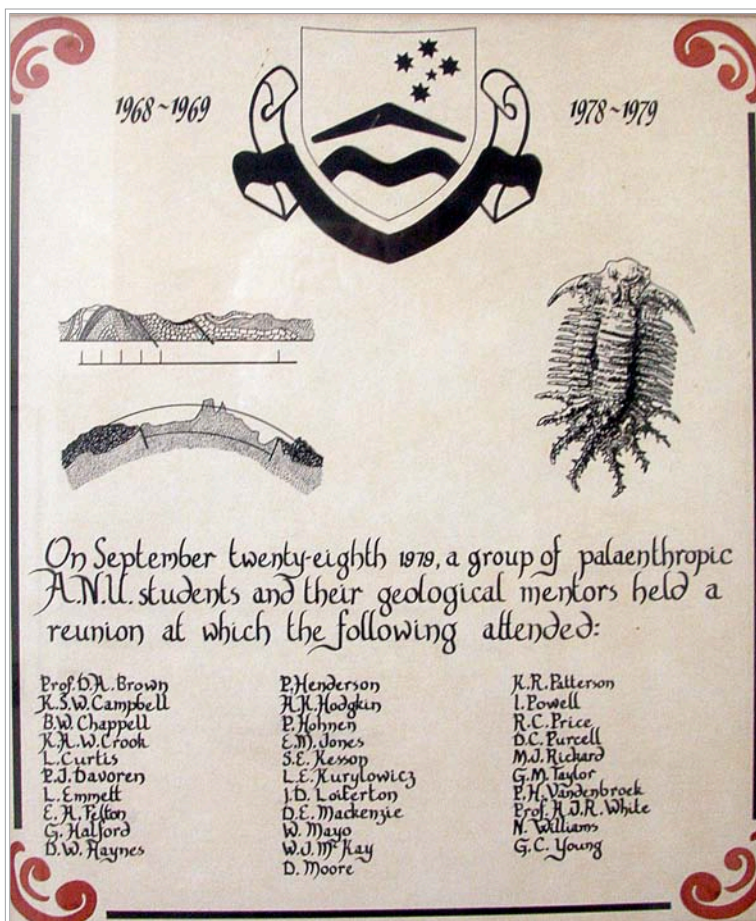 1968~1969
1978~1979
On September twenty-eighth 1979, a group of palaenthropic
A.N.U. students and their geological mentors held a
reunion at which the following attended:
Prof. D.A. Brown
K.S.W. Campbell
B.W. Chappell
K.A.W. Crook
L. Curtis
P.J. Davoren
L. Emmett
E.A. Felton
G. Halford
D.W. Haynes
P. Henderson
A.K. Hodgkin
P. Hohnen
E.M. Jones
S.E. Kessop
L.E. Kurylowicz
J.D. Loiterton
D.E. Mackenzie
W. Mayo
W.J. McKay
D. Moore
K.R. Patterson
I. Powell
R.C. Price
D.C. Purcell
M.J. Rickard
G.M. Taylor
P.H. Vandenbroek
Prof. A.J.R. White
N. Williams
G.C. Young